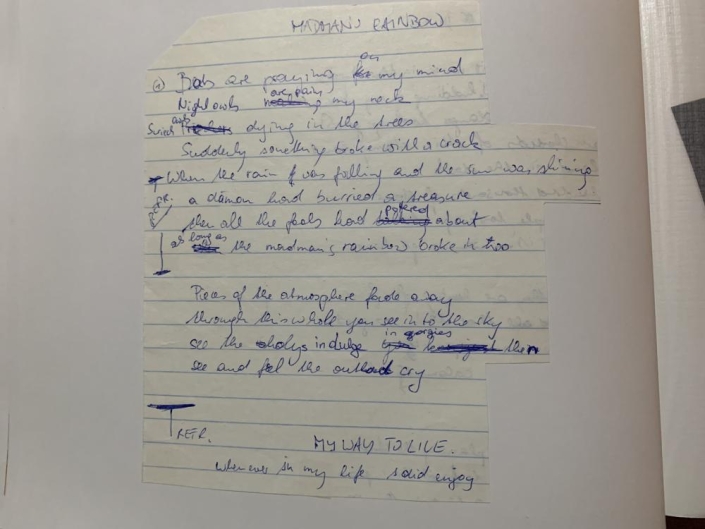 MADMAN'S RAINBOW
① Bats are praying on my mind
Nightowls are pains my neck
asps dying in the trees
Suddenly something broke with a crack
When the rain was falling and the sun was shining
a dämon had burried a treasure
then all the fools had about
as long as the madman's rainbow broke in two
Pieces of the atmosphere fade away
through this whole you see into the sky
see the indulge in orgies
see and feel the cry
RETR.
MY WAY TO LIVE.
whenever in my life enjoy